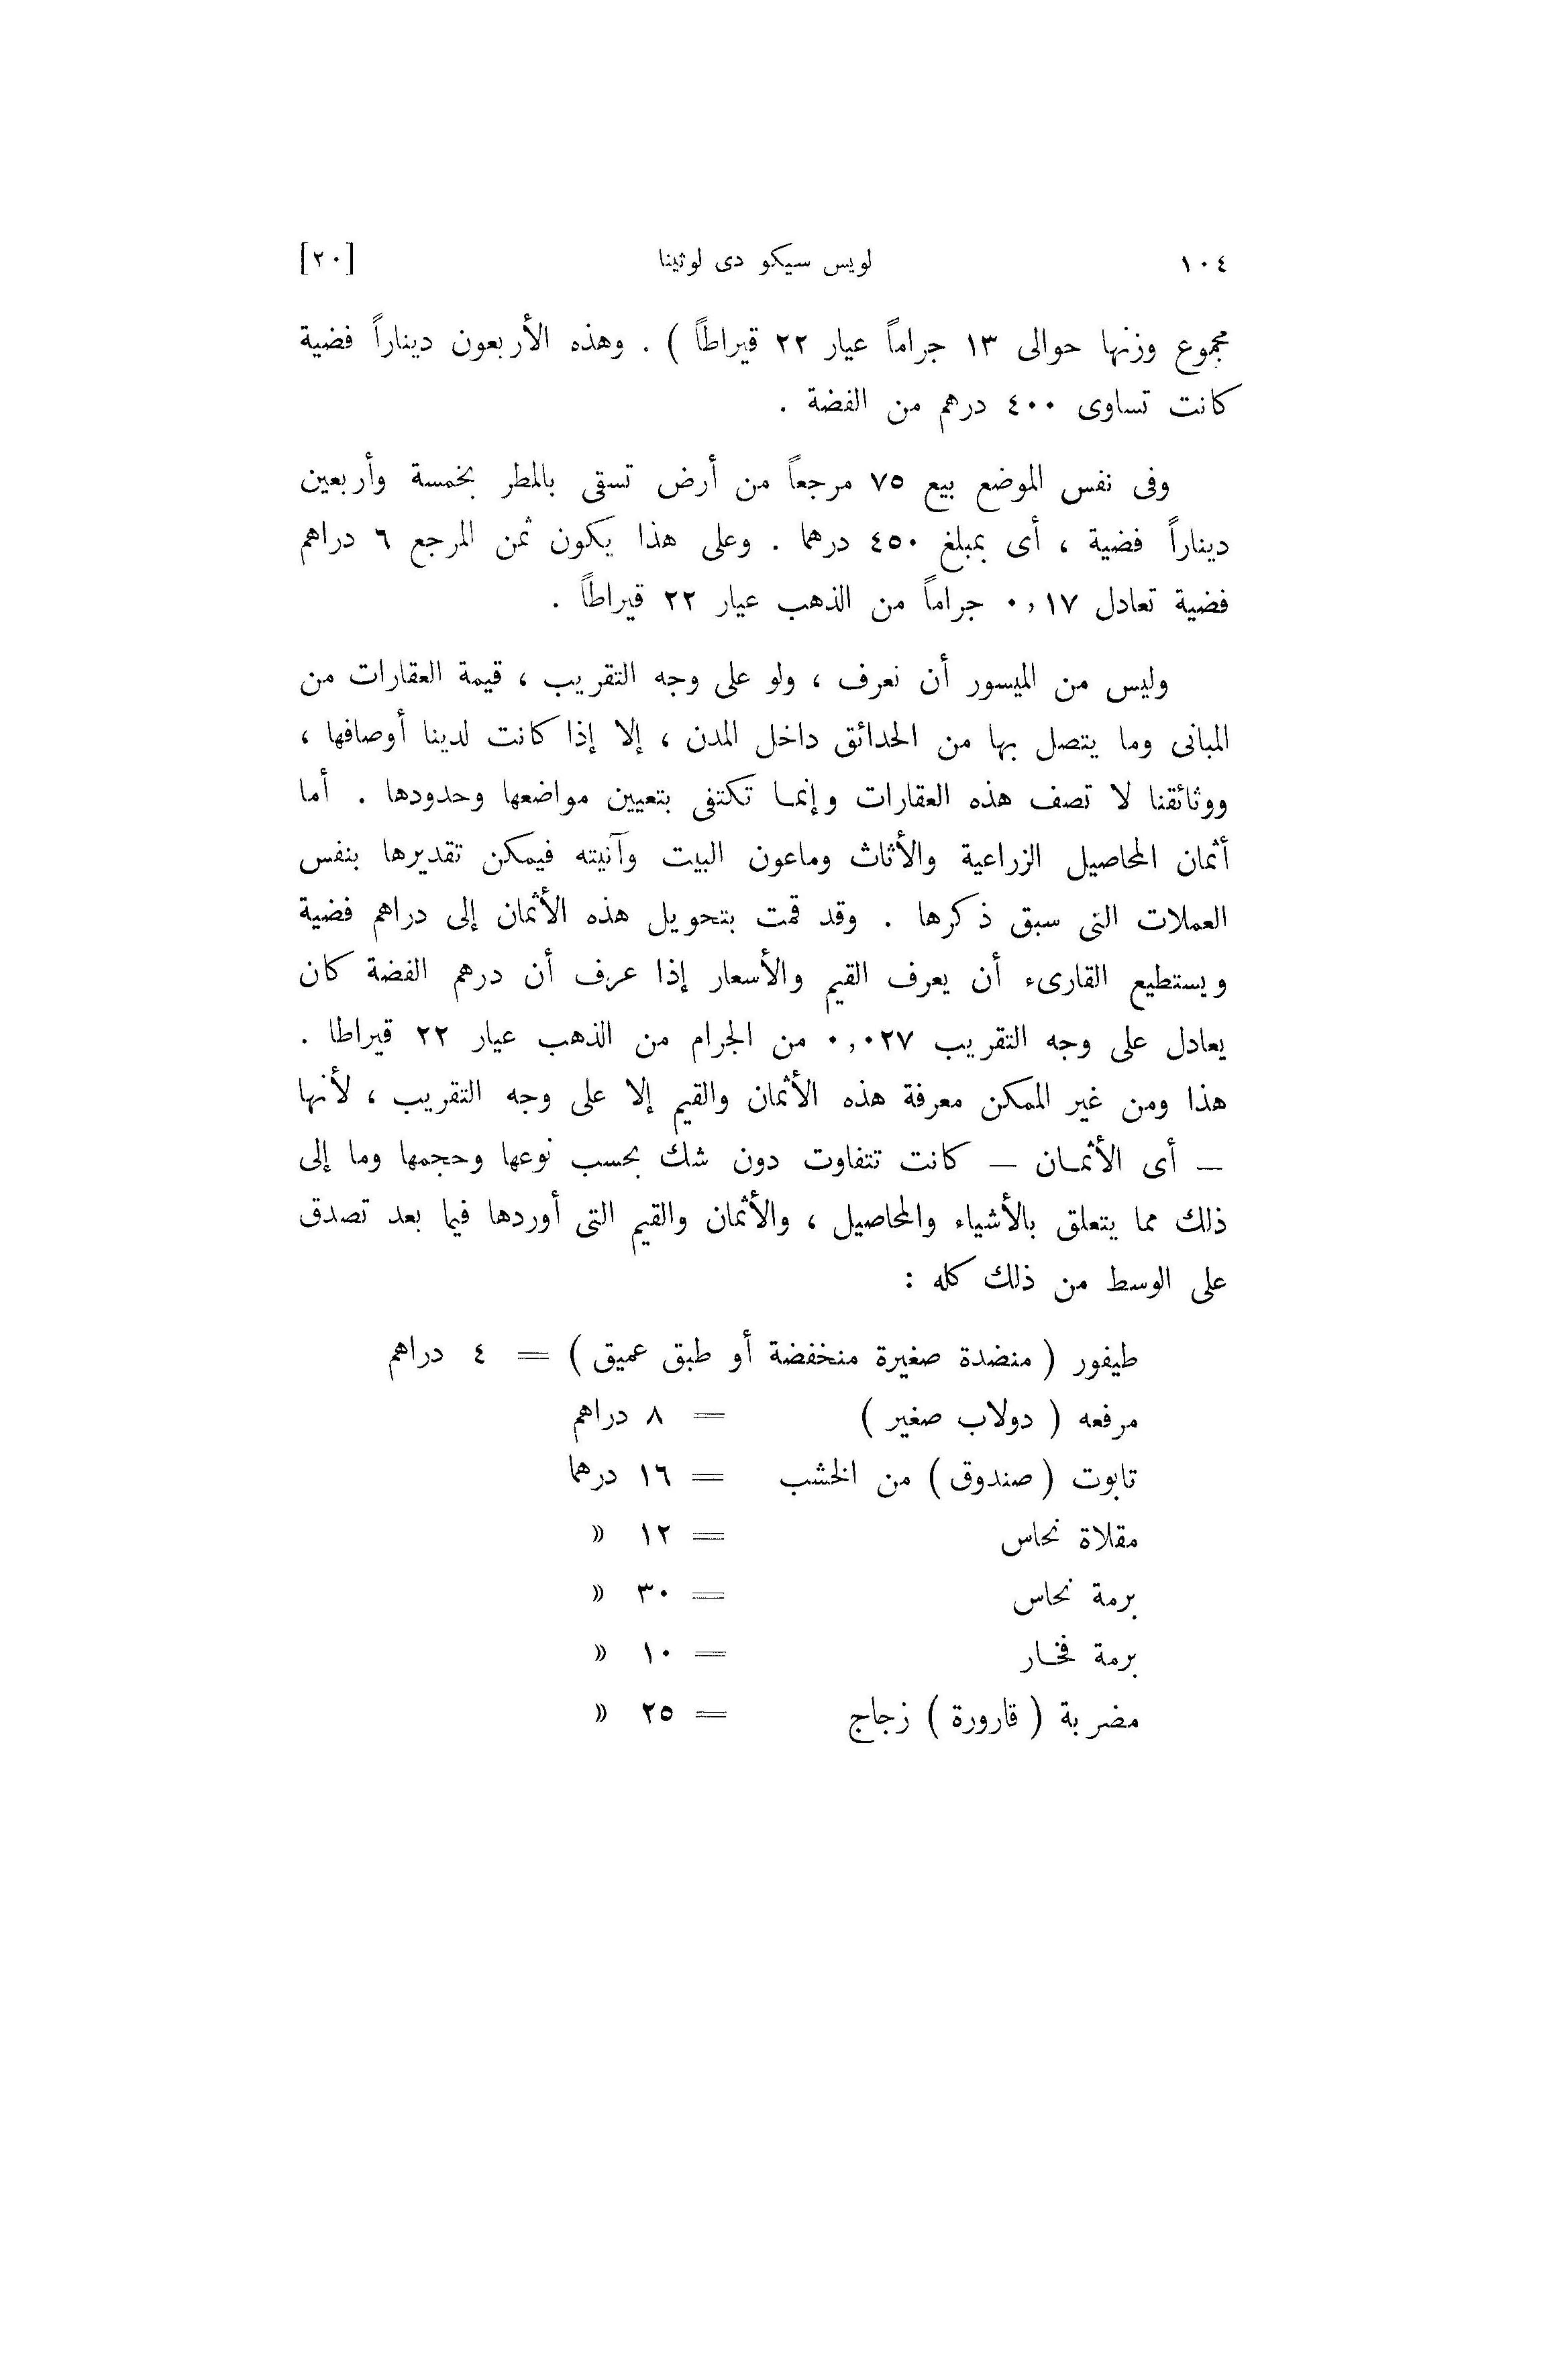 ١٠٤ لويس سيكو دى لوثينا [٢٠]
مجموع وزنها حوالى ١٣ جراماً عيار ٢٢ قيراطاً ) . وهذه الأربعون ديناراً فضية
كانت تساوى ٤٠٠ درهم من الفضة .
وفى نفس الموضع بيع ٧٥ مرجعاً من أرض تسقى بالمطر بخمسة وأربعين
ديناراً فضية ، أى بمبلغ ٤٥٠ درهما . وعلى هذا يكون ثمن المرجع ٦ دراهم
فضية تعادل ٠,١٧ جراماً من الذهب عيار ٢٢ قيراطاً .
وليس من الميسور أن نعرف ، ولو على وجه التقريب ، قيمة العقارات من
المبانى وما يتصل بها من الحدائق داخل المدن ، إلا إذا كانت لدينا أوصافها ،
ووثائقنا لا تصف هذه العقارات وإنما تكتفى بتعيين مواضعها وحدودها . أما
أثمان المحاصيل الزراعية والأثاث وماعون البيت وآنيته فيمكن تقديرها بنفس
العملات التى سبق ذكرها . وقد قمت بتحويل هذه الأثمان إلى دراهم فضية
ويستطيع القارىء أن يعرف القيم والأسعار إذا عرف أن درهم الفضة كان
يعادل على وجه التقريب ٠,٠٢٧ من الجرام من الذهب عيار ٢٢ قيراطا .
هذا ومن غير الممكن معرفة هذه الأثمان والقيم إلا على وجه التقريب ، لأنها
— أى الأثمان — كانت تتفاوت دون شك بحسب نوعها وحجمها وما إلى
ذلك مما يتعلق بالأشياء والمحاصيل ، والأثمان والقيم التى أوردها فيما بعد تصدق
على الوسط من ذلك كله :
طيفور ( منضدة صغيرة منخفضة أو طبق عميق ) = ٤ دراهم
مرفعه ( دولاب صغير ) = ٨ دراهم
تابوت ( صندوق ) من الخشب = ١٦ درهما
مقلاة نحاس = ١٢ »
برمة نحاس = ٣٠ »
برمة فخار = ١٠ »
مضربة ( قارورة ) زجاج = ٢٥ »